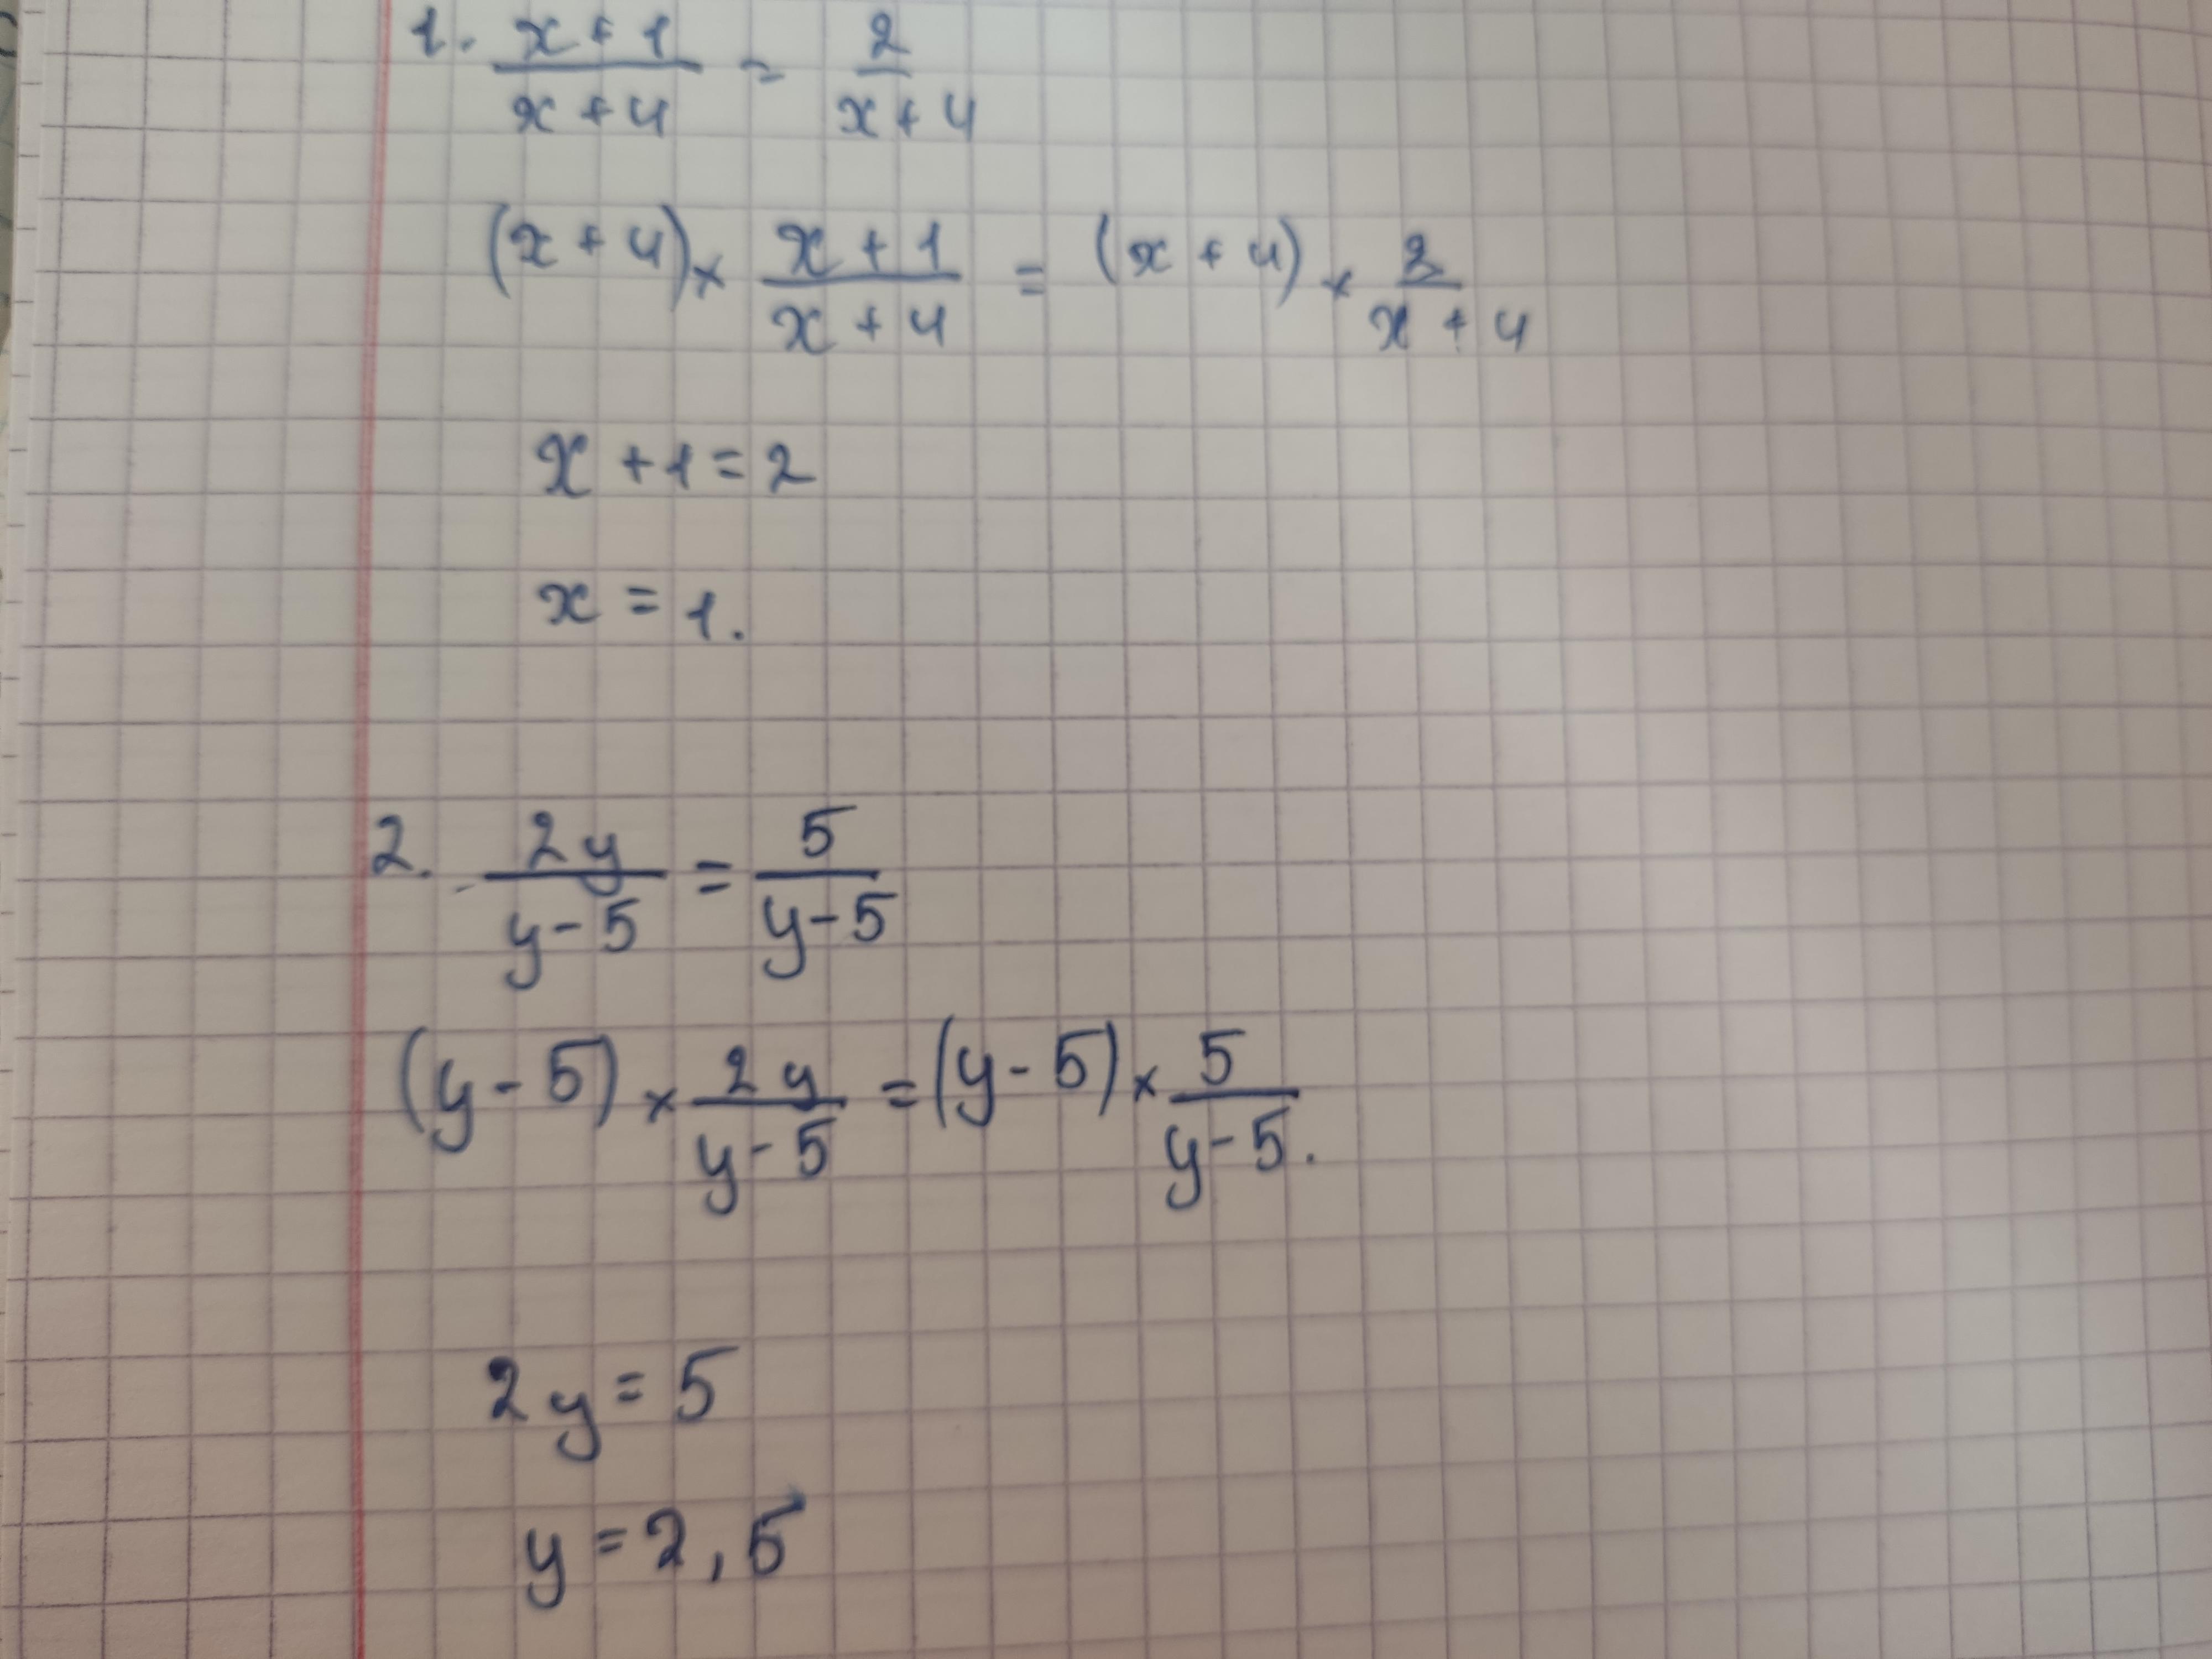 1. (x + 1)/(x + 4) = 2/(x + 4)
(x + 4) × (x + 1)/(x + 4) = (x + 4) × 2/(x + 4)
x + 1 = 2
x = 1.
2. 2y/(y - 5) = 5/(y - 5)
(y - 5) × 2y/(y - 5) = (y - 5) × 5/(y - 5).
2y = 5
y = 2,5